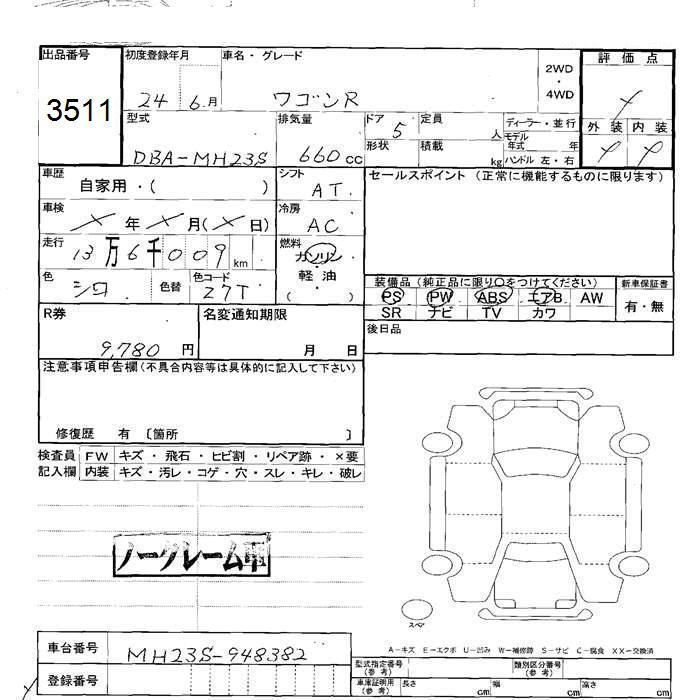 出品番号 初度登録年月 車名・グレード 2WD ・ 4WD 評価点
3511 24 6月 ワゴンR
型式 排気量 ドア 5 定員 人 ディーラー・並行 外装 内装
DBA-MH23S 660cc 形状 積載 kg モデル年式 年 ハンドル 左・右
車歴 自家用・( ) シフト AT セールスポイント (正常に機能するものに限ります)
車検 × 年 × 月 (× 日) 冷房 AC
走行 13万6千009km 燃料 ガソリン・軽・油 ( )
色 シロ 色替 色コード Z7T
装備品 (純正品に限り○をつけてください) 新車保証書
PS PW ABS エアB AW 有・無
SR ナビ TV カワ
R券 9,780円 名変通知期限 月 日 後日品
注意事項申告欄 (不具合内容等は具体的に記入して下さい)
修復歴 有 〔箇所 〕
検査員 FW キズ・飛石・ヒビ割・リペア跡・×要
記入欄 内装 キズ・汚レ・コゲ・穴・スレ・キレ・破レ
ノークレーム車
スペア
A-キズ E-エクボ U-凹み W-補修跡 S-サビ C-腐食 XX-交換済
車台番号 MH23S-948382 型式指定番号 (参考) 類別区分番号 (参考)
登録番号 車庫証明用 (参考) 長さ cm 幅 cm 高さ cm